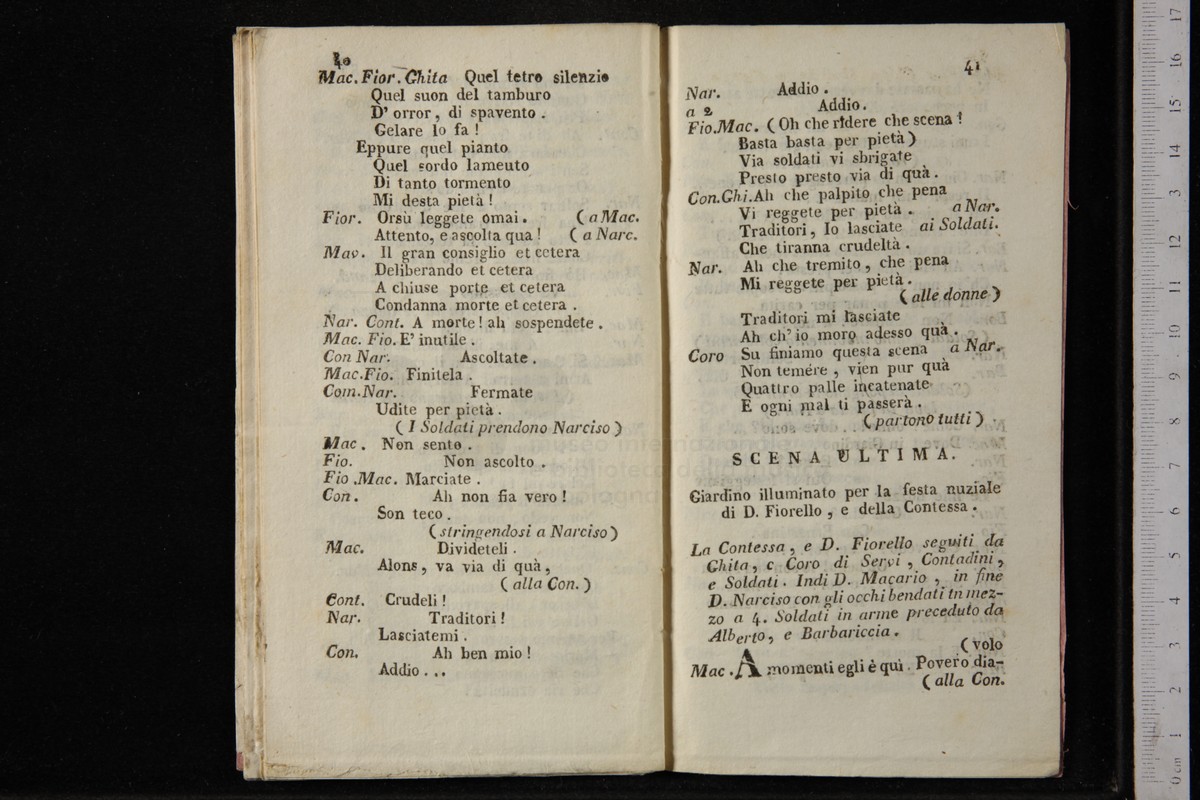 40
Mac. Fior. Ghita Quel tetro silenzio
Quel suon del tamburo
D' orror, di spavento.
Gelare lo fa!
Eppure quel pianto
Quel sordo lameuto
Di tanto tormento
Mi desta pietà!
Fior. Orsù leggete omai. ( a Mac.
Attento, e ascolta qua! ( a Narc.
Mav. Il gran consiglio et cetera
Deliberando et cetera
A chiuse porte et cetera
Condanna morte et cetera.
Nar. Cont. A morte! ah sospendete.
Mac. Fio. E' inutile.
Con Nar. Ascoltate.
Mac. Fio. Finitela.
Com. Nar. Fermate
Udite per pietà.
( I Soldati prendono Narciso )
Mac. Non sento.
Fio. Non ascolto.
Fio. Mac. Marciate.
Con. Ah non fia vero!
Son teco.
( stringendosi a Narciso )
Mac. Divideteli.
Alons, va via di quà,
( alla Con. )
Cont. Crudeli!
Nar. Traditori!
Lasciatemi.
Con. Ah ben mio!
Addio...
41
Nar. Addio.
a 2 Addio.
Fio. Mac. ( Oh che ridere che scena!
Basta basta per pietà )
Via soldati vi sbrigate
Presto presto via di quà.
Con. Ghi. Ah che palpito che pena
Vi reggete per pietà. a Nar.
Traditori, lo lasciate ai Soldati.
Che tiranna crudeltà.
Nar. Ah che tremito, che pena
Mi reggete per pietà.
( alle donne )
Traditori mi lasciate
Ah ch' io moro adesso quà.
Coro Su finiamo questa scena a Nar.
Non temére, vien pur quà
Quattro palle incatenate
E ogni mal ti passerà.
( partono tutti )
SCENA ULTIMA.
Giardino illuminato per la festa nuziale
di D. Fiorello, e della Contessa.
La Contessa, e D. Fiorello seguiti da
Ghita, c Coro di Servi, Contadini,
e Soldati. Indi D. Macario, in fine
D. Narciso con gli occhi bendati tn mez-
zo a 4. Soldati in arme preceduto da
Alberto, e Barbariccia.
( volo
Mac. A momenti egli è quì. Povero dia-
( alla Con.
museo internazionale
e biblioteca della musica
bologna
0 cm 1 2 3 4 5 6 7 8 9 10 11 12 13 14 15 16 17